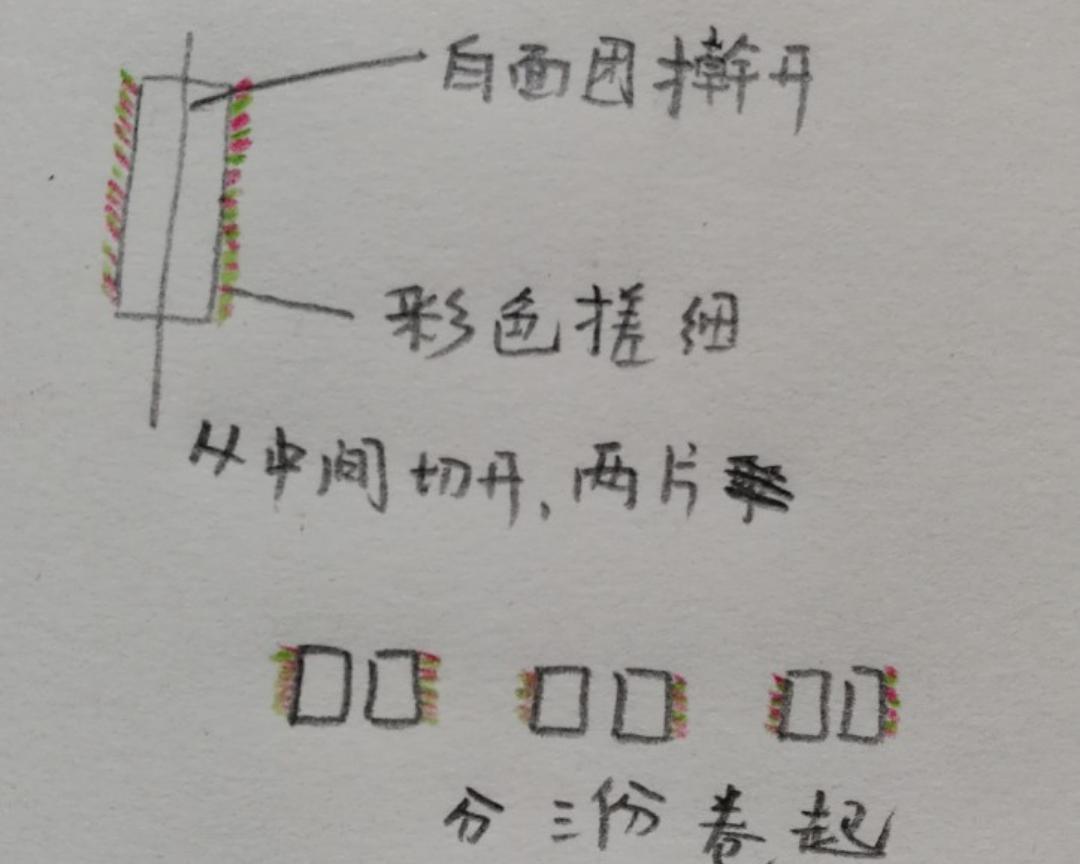 白面团擀开
彩色搓细
从中间切开,两片
分三份卷起